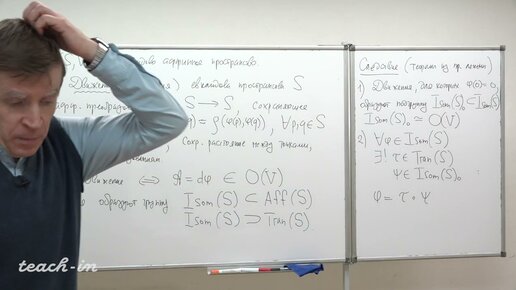 S,
аффинное пространство.
Движение
евклидова пространства S
S → S, сохраняющее
= ρ(φ(p), φ(q)), ∀p,q∈S
сохр. расстояние между точками,
движение ⟺ 𝒜 = dφ ∈ O(V)
образуют группу Isom(S) ⊂ Aff(S)
Isom(S) ⊃ Tran(S)
Следствие (теоремы из пр. лекции)
1) Движения, для которых φ(o)=o,
образуют подгруппу Isom(S)₀ ⊂ Isom(S)
Isom(S)₀ ≃ O(V)
2) ∀φ∈Isom(S)
∃! τ∈Tran(S)
ψ∈Isom(S)₀
φ = τ∘ψ
teach-in